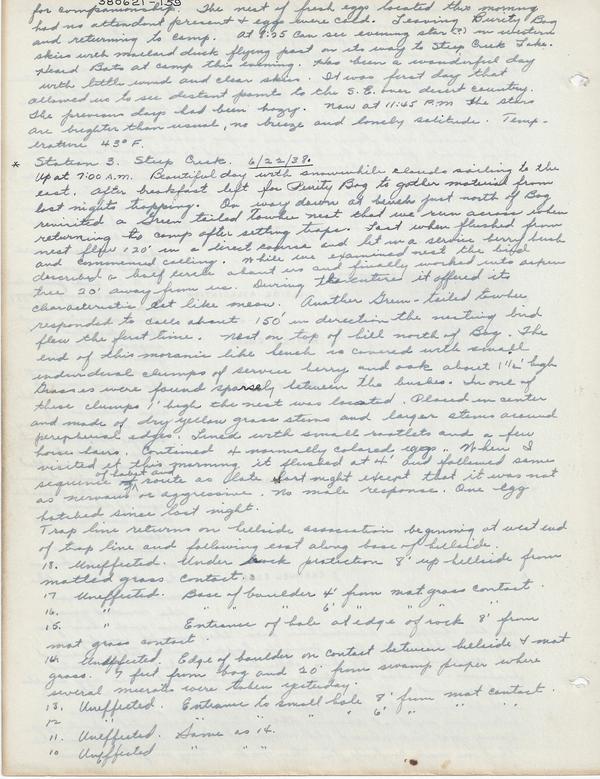 380621-159
for companionship. The nest of fresh eggs located this morning
had no attendant present & eggs were cold. Leaving Purity Bog
and returning to camp. At 9:25 can see evening star (?) in western
skies with mallard duck flying past on its way to Steep Creek Lake.
Heard Bats at camp this evening. Has been a wonderful day
with little wind and clear skies. It was first day that
allowed us to see distant point to the S.E. over desert country.
The previous days had been hazy. Now at 11:45 P.M. the stars
are brighter than usual, no breeze and lonely solitude. Temp-
erature 43° F.
* Station 3. Steep Creek. 6/22/38.
Up at 7:00 A.M. Beautiful day with snowwhile clouds sailing to the
east. After breakfast left for Purity Bog to gather material from
last nights trapping. On way down at brush just north of Bog
revisited a Green tailed towhee nest that we run across when
returning to camp after setting traps. Last when flushed from
nest flew 120' in a direct course and lit in a service berry bush
and commenced calling. While we examined nest the bird
described a half circle about us and finally worked into aspen
tree 20' away from us. During the entire it offered its
characteristic cat like meow. Another Green-tailed towhee
responded to calls about 150' in direction the nesting bird
flew the first time. Nest on top of hill north of Bog. The
end of this morainic like brush is covered with small
individual clumps of service berry and oak about 1½' high
Grasses were found sparsely between the bushes. In one of
these clumps 1' high the nest was located. Placed in center
and made of dry yellow grass stems and larger stems around
peripheral edges. Lined with small rootlets and a few
horse hairs. Contained 4 normally colored eggs. When I
visited it this morning it flushed at 4' and followed same
sequence of habit and route as late last night except that it was not
as nervous or aggressive. No male response. One egg
hatched since last night.
Trap line returns on hillside association beginning at west end
of trap line and following east along base of hillside.
18. Uneffected. Under rock protection 8' up hillside from
matted grass contact.
17 Uneffected. Base of boulder 4' from mat grass contact.
16. " " " " 6' " " " "
15. " Entrance of hole at edge of rock 8' from
mat grass contact.
14. Uneffected. Edge of boulder on contact between hillside & mat
grass. 7 feet from bog and 20' from swamp proper where
several microts were taken yesterday.
13. Uneffected. Entrance to small hole 8' from mat contact.
12 " " " " " 6' " " "
11. Uneffected. Same as 14.
10 Uneffected " " "